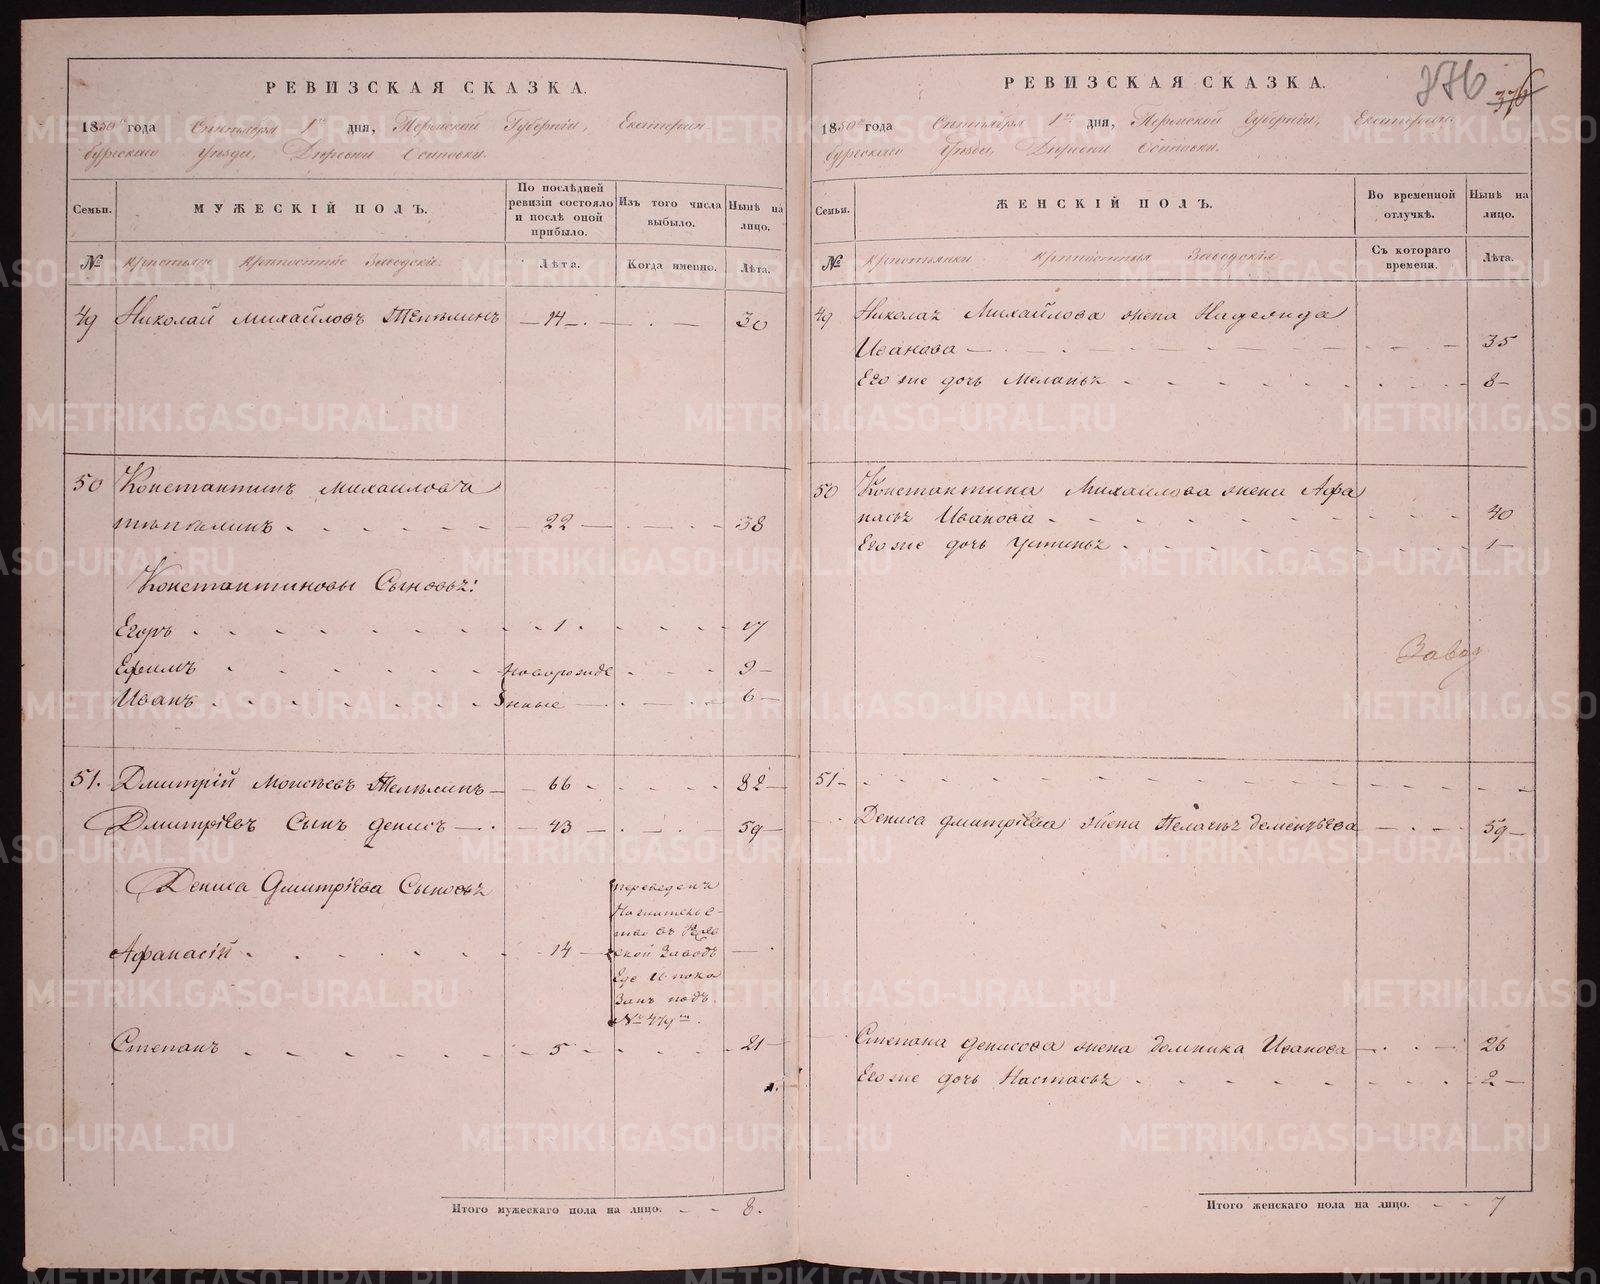 РЕВИЗСКАЯ СКАЗКА.
1850 года Сентября 1го дня, Пермской Губерніи, Екатерин-
бургскаго Уѣзда, Деревни Осиновки.
Семьи.
МУЖЕСКІЙ ПОЛЪ.
По послѣдней
ревизіи состояло
и послѣ оной
прибыло.
Изъ того числа
выбыло.
Нынѣ на
лицо.
№
Крестьяне Крепостные Заводскіе.
Лѣта.
Когда именно.
Лѣта.
49 Николай Михайловъ 14 30
50 Константинъ Михайловъ
22 38
Константиновы Сыновья:
Егоръ 1 17
Ефимъ новорожде 9
Иванъ нные 6
51. Дмитрій Моисеевъ 66 82
Дмитріевъ Сынъ Денисъ 43 59
Дениса Дмитріева Сыновья
переведенъ
Афанасій 14
ской Заводъ
Где и пока
занъ подъ
№ 479
Степанъ 5 21
Итого мужескаго пола на лицо. 8.
РЕВИЗСКАЯ СКАЗКА.
376
1850 года Сентября 1го дня, Пермской Губерніи, Екатерин
бургскаго Уѣзда, Деревни Осиновки.
Семьи.
ЖЕНСКІЙ ПОЛЪ.
Во временной
отлучкѣ.
Нынѣ на
лицо.
№
Крестьянки Крепостныя Заводскія.
Съ котораго
времени.
Лѣта.
49 Николая Михайлова жена Надежда
Иванова 35
Его же дочь Меланья 8
50 Константина Михайлова жена Афа
насья Иванова 40
Его же дочь Устинья 1
Завод
51
Дениса Дмитріева жена Пелагея Дементьева 59
Степана Денисова жена Домника Иванова 26
Его же дочь Настасья 2
Итого женскаго пола на лицо. 7
METRIKI.GASO-URAL.RU